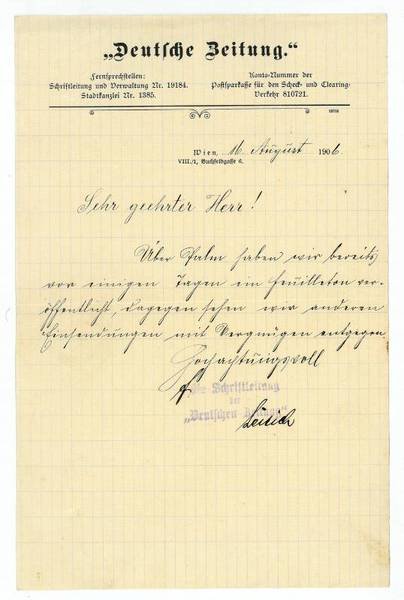 „Deutsche Zeitung.“
Fernsprechstellen:
Schriftleitung und Verwaltung Nr. 19184.
Stadtkanzlei Nr. 1385.
Konto-Nummer der
Postsparkasse für den Scheck- und Clearing-
Verkehr 810721.
Wien, 16. August 1906.
VIII./1, Buchfeldgasse 6.
Sehr geehrter Herr!
Über Palm haben wir bereits
vor einigen Tagen ein Feuilleton ver-
öffentlicht, dagegen sehen wir anderen
Einsendungen mit Vergnügen entgegen
Hochachtungsvoll
Die Schriftleitung
der
„Deutschen Zeitung“